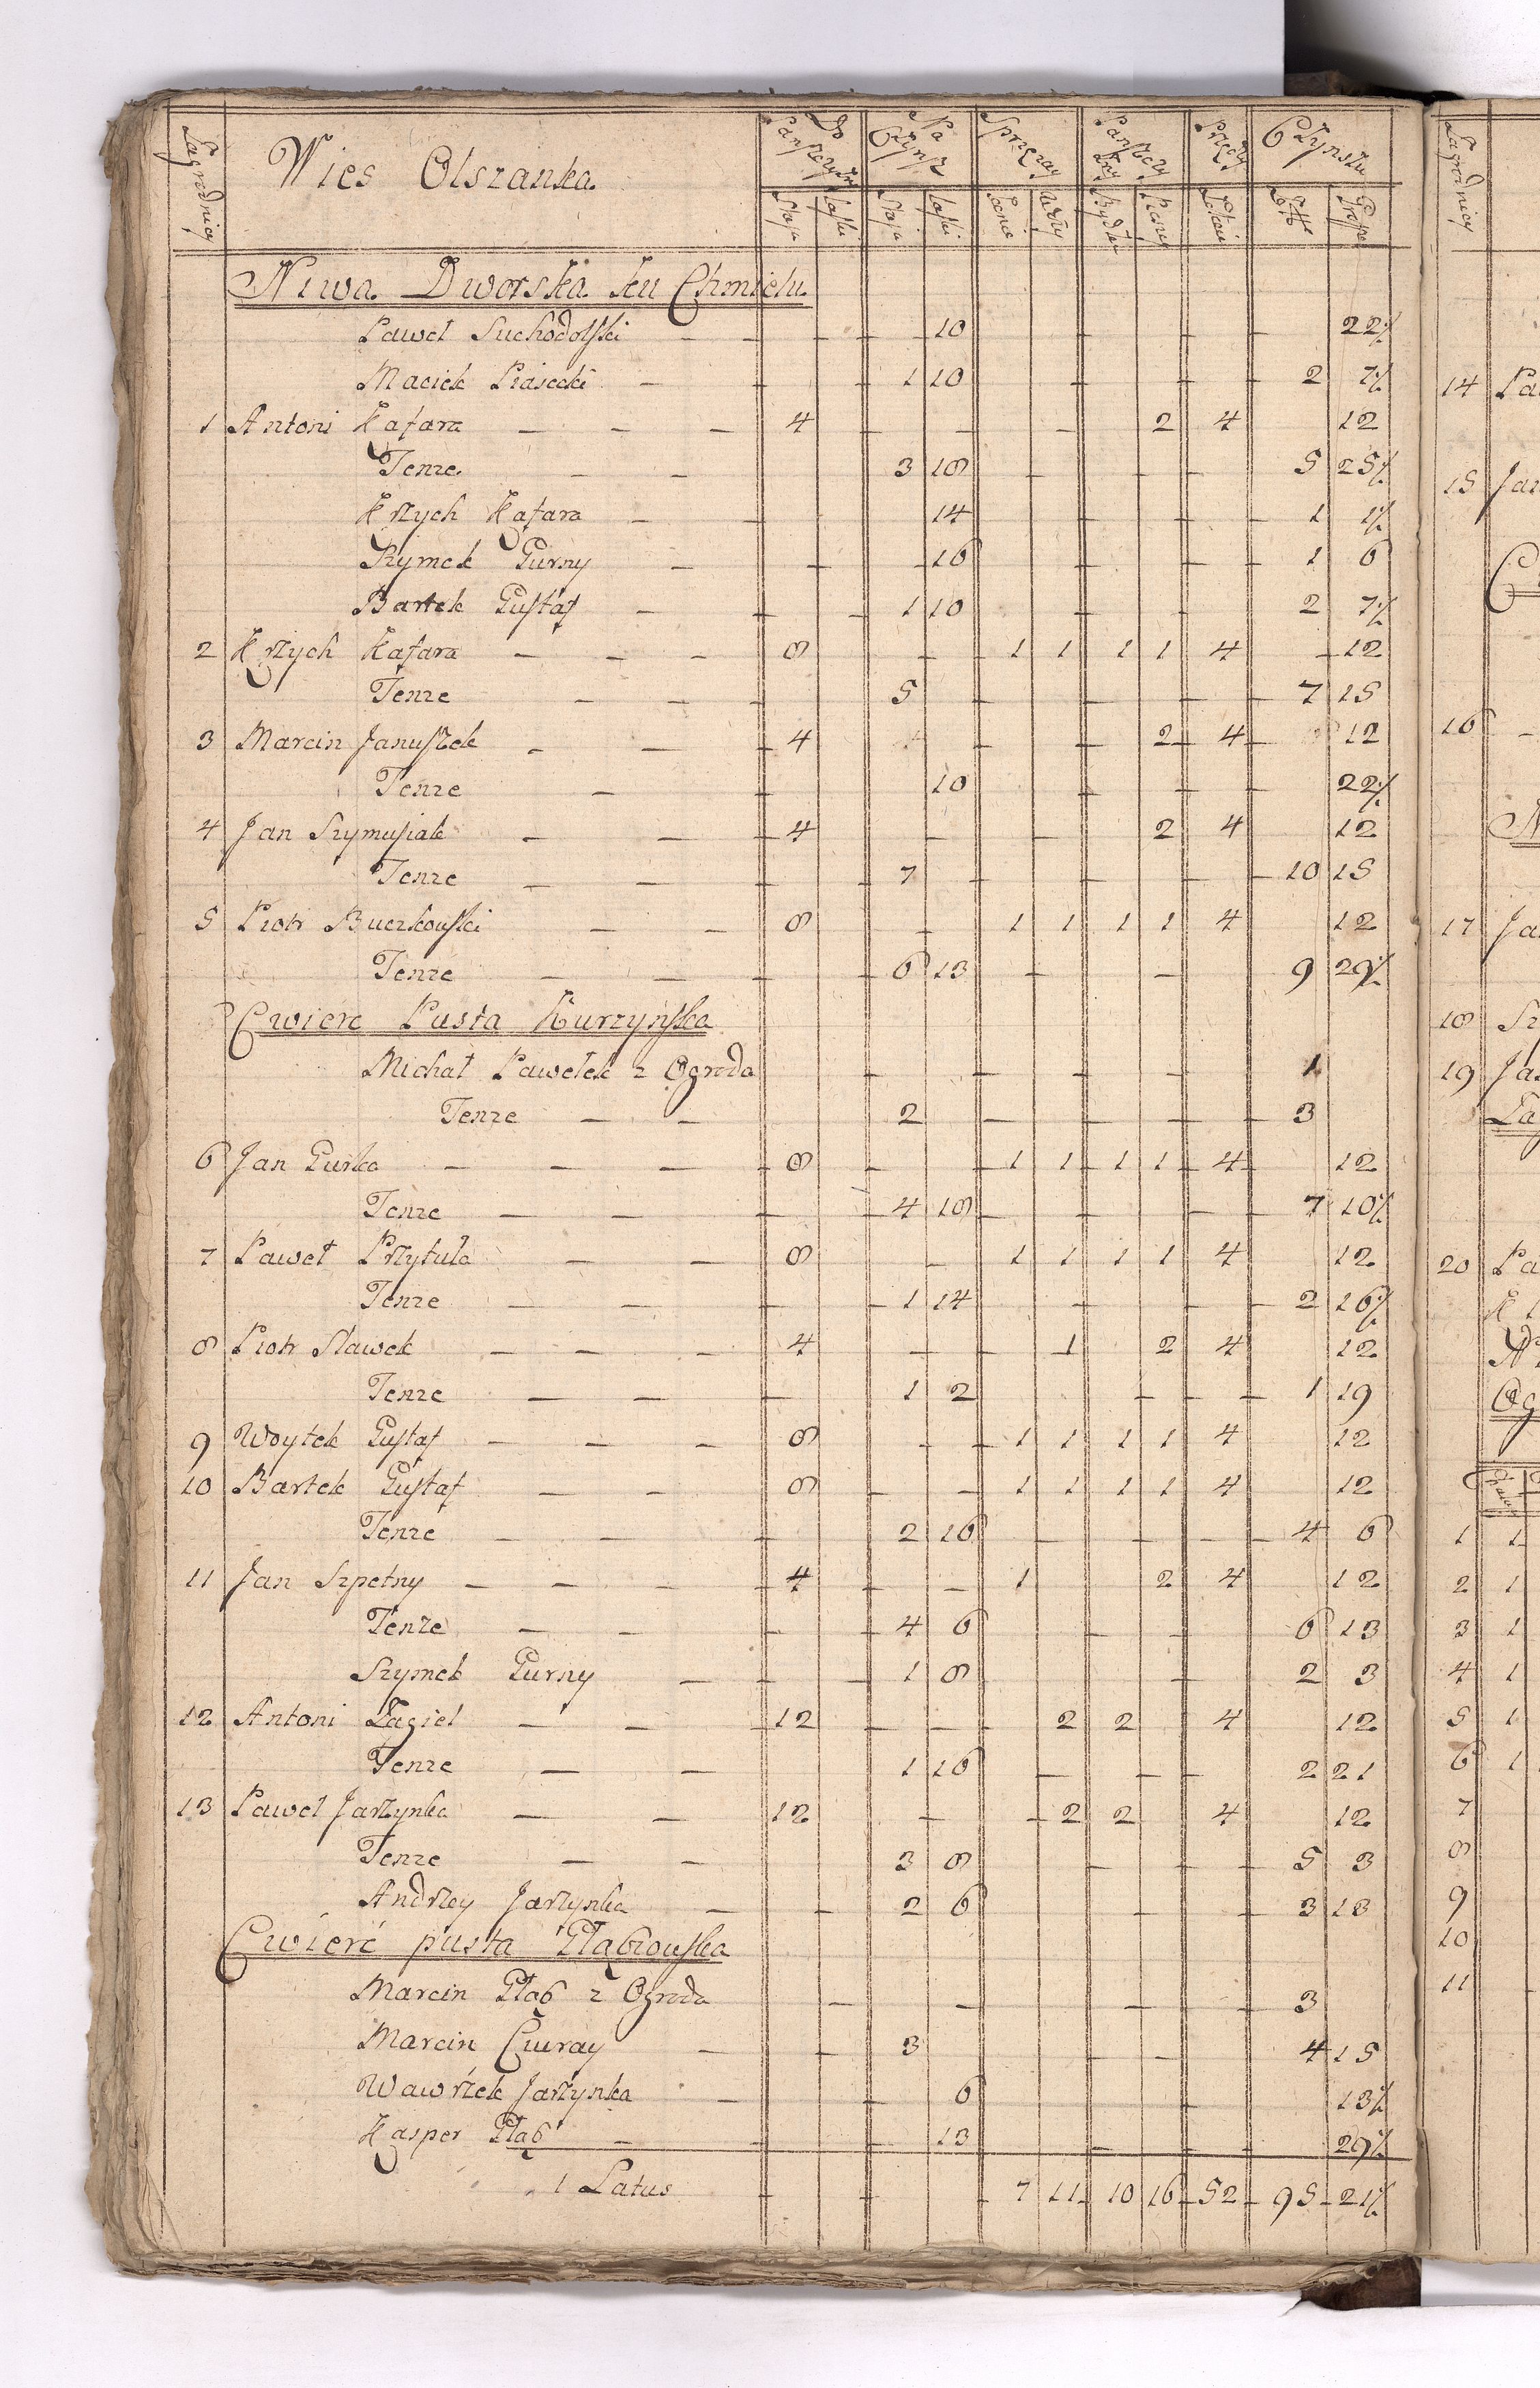 Zagrodnicy Wies Olszanka Do Panszczyzn Na Czynsz Sprzezay Panszczyzny Przędzy Czynszu
Staja Laski Staja Laski Konie Woły Bydłem Pieszo Łokci Zł Grosze
Niwa Dworska ku Chmielu
Paweł Suchodolski — — 10 22½
Maciek Piasecki — 1 10 2 7½
1 Antoni Kafara — — — 4 2 4 12
Tenze — — 3 18 5 25½
Krzych Kafara — 14 1 1½
Szymek Gurny — 16 1 6
Bartek Gustaf — 1 10 2 7½
2 Krzych Kafara — — — 8 1 1 1 1 4 12
Tenze — — 5 7 15
3 Marcin Januszek — — 4 2 4 12
Tenze — 10 22½
4 Jan Szymusiak — — 4 2 4 12
Tenze — — 7 10 15
5 Piotr Buczkowski — — 8 1 1 1 1 4 12
Tenze — — 6 13 9 29½
Cwierc Pusta Kurzynska
Michał Pawełek z Ogroda 1
Tenze — — 2 3
6 Jan Gurka — — — 8 1 1 1 1 4 12
Tenze — — 4 18 7 10½
7 Paweł Przytuła — — 8 1 1 1 1 4 12
Tenze — — 1 14 2 16½
8 Piotr Sławek — — — 4 1 2 4 12
Tenze — — 1 2 1 19
9 Woytek Gustaf — — — 8 1 1 1 1 4 12
10 Bartek Gustaf — — 8 1 1 1 1 4 12
Tenze — — 2 16 4 6
11 Jan Szpetny — — — 4 1 2 4 12
Tenze — — 4 6 6 13
Szymek Gurny — 1 8 2 3
12 Antoni Zagiel — — 12 2 2 4 12
Tenze — — 1 16 2 21
13 Paweł Jarzynka — — 12 2 2 4 12
Tenze — — 3 8 5 3
Andrzey Jarzynka — 2 6 3 13
Cwierć pusta Głąbiowska
Marcin Głąb z Ogroda 3
Marcin Ciuray — 3 4 15
Wawrzek Jarzynka — 6 13½
Kasper Głąb — 13 29½
1 Latus 7 11 10 16 52 95 21½
Zagrodnicy
14 Pa
15 Jan
16
17 Ja
18 Sz
19 Ja
20 Pa
Og
1 1
2 1
3 1
4 1
5 1
6 1
7
8
9
10
11